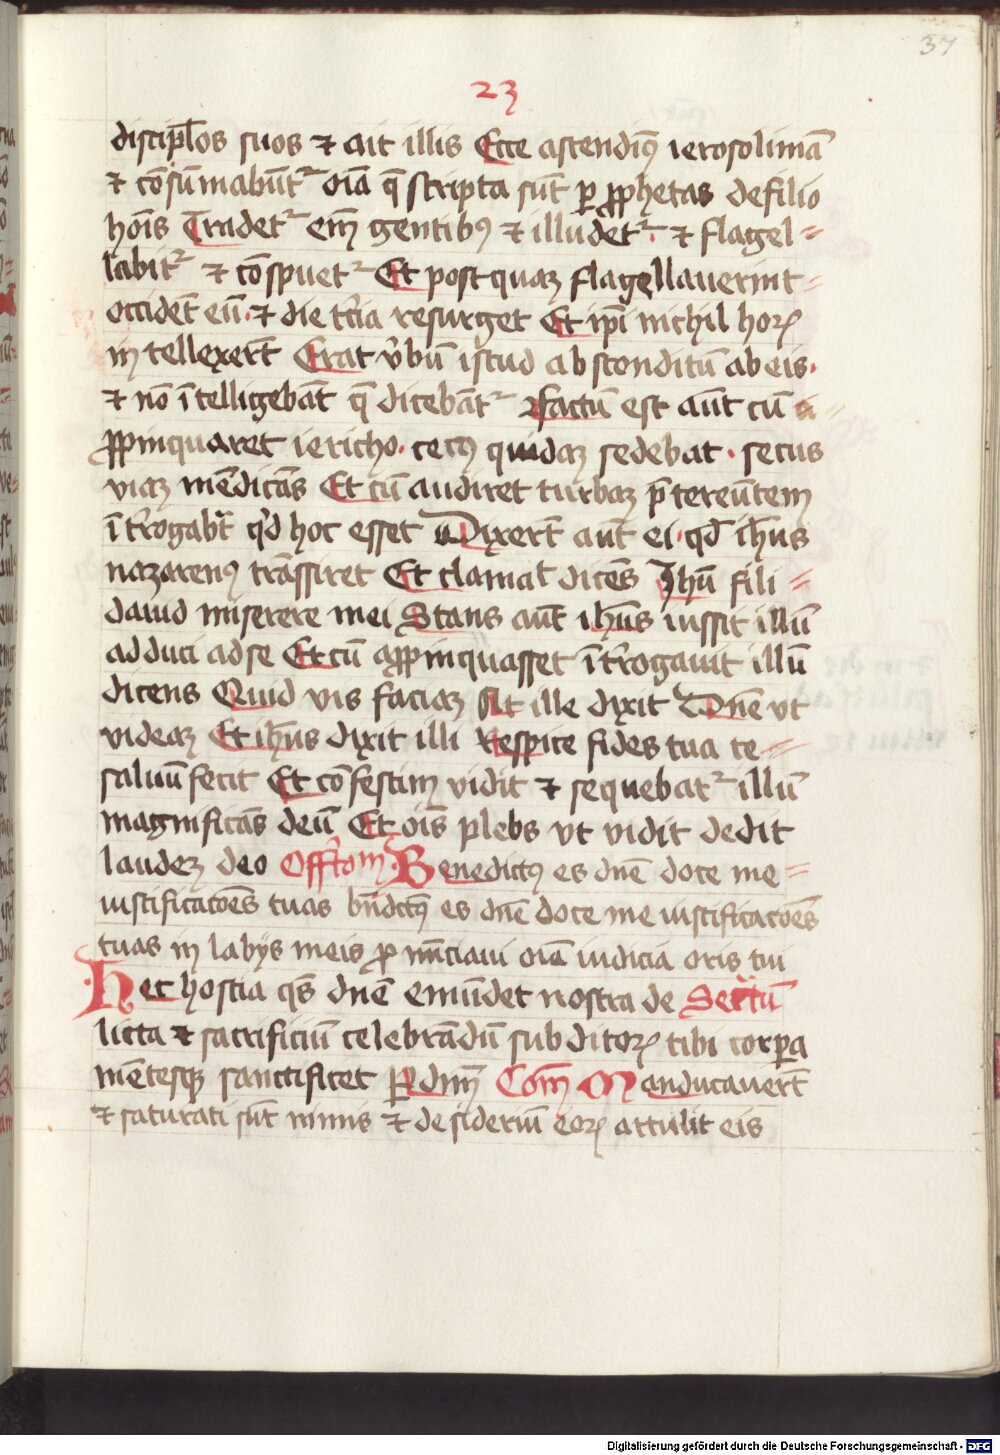 37
23
discipl̅os suos ⁊ ait illis Ecce ascendim9 ierosolimā
⁊ cōsūmabūt᷑ oīa q̄ scripta sūt ꝑ ꝓphetas de filio
hoīs Tradet᷑ em̄ gentib9 ⁊ illudet᷑ · ⁊ flagel=
labit᷑ ⁊ cōspuet᷑ Et postquaꝫ flagellauerint=
occidēt eū · ⁊ die t̄cia resurget Et ip̄i nichil hoꝝ
intellexer̄t Erat v̄bū istud absconditū ab eis ·
⁊ nō ītelligebāt q̄ dicebāt᷑ Factū est aūt cū a
ꝓpinquaret iericho · cec9 quidaꝫ sedebat · secus
viaꝫ mēdicās Et cū audiret turbaꝫ p̄tereūtem
īt̄rogab̄t q̇d hoc esset Dixer̄t aūt ei · qd̄ ih̄us
nazaren9 trāssiret Et clamat̄ dicēs Jh̄u fili=
dauid miserere mei Stans aūt ih̄us iussit illū
adduci ad se Et cū aꝓpinquasset īt̄rogauit illū
dicens Quid vis faciaꝫ At ille dixit Dn̄e vt
videaꝫ Et ih̄us dixit illi Respice fides tua te=
saluū fecit Et cōfestim vidit ⁊ sequebat᷑ illū
magnificās deū Et oīs plebs vt vidit dedit
laudeꝫ deo Offr̄tom̄ Benedict9 es dn̄e doce me=
iustificacōes tuas bn̄dct9 es dn̄e doce me iustificacōes
tuas in labijs meis ꝓnūciaui oīa iudicia oris tui
Hec hostia qs̄ dn̄e emūdet nostra de Secͬtū
licta ⁊ sacrificiū celebrādū subditoꝝ tibi corꝑa
mētesqꝫ sanctificet P̄ dm̄ Com̄ Manducauer̄t
⁊ saturati sūt nimis ⁊ desideriū eoꝝ attulit eis
Digitalisierung gefördert durch die Deutsche Forschungsgemeinschaft - DFG